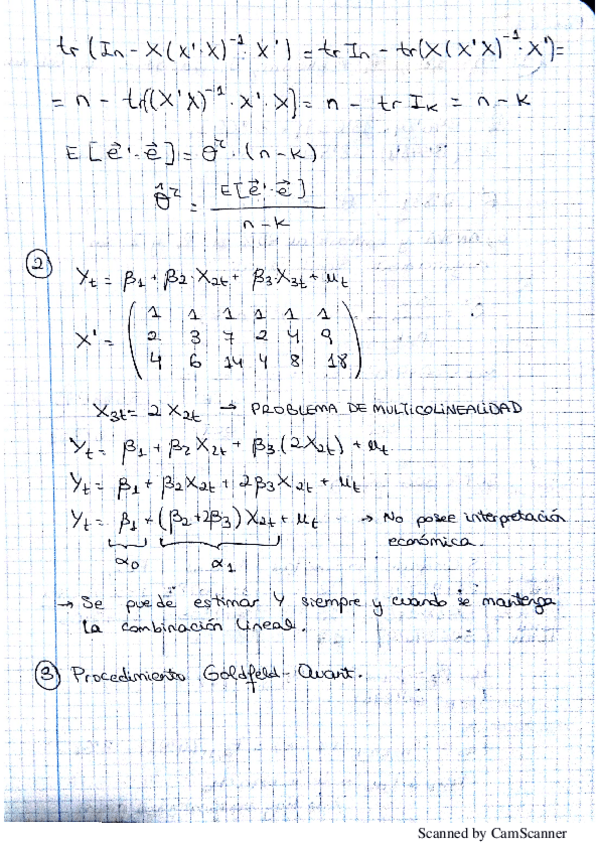 tr (In - X (X'·X)⁻¹·X') = tr In - tr(X (X'X)⁻¹·X') =
= n - tr((X'X)⁻¹·X'·X] = n - tr I_K = n - K
E [e⃗'·e⃗] = θ²·(n-K)
θ̂² = E[e⃗'·e⃗] / n-K
② Y_t = β₁ + β₂·X_2t + β₃·X_3t + u_t
1 1 1 1 1 1
X' = ( 2 3 7 2 4 9 )
4 6 14 4 8 18
X_3t = 2 X_2t → PROBLEMA DE MULTICOLINEALIDAD
Y_t = β₁ + β₂ X_2t + β₃·(2X_2t) + u_t
Y_t = β₁ + β₂X_2t + 2β₃X_2t + u_t
Y_t = β₁ + (β₂+2β₃) X_2t + u_t → No posee interpretación
económica.
α₀ α₁
→ Se puede estimar Y siempre y cuando se mantenga
la combinación lineal.
③ Procedimiento Goldfeld-Quant.
Scanned by CamScanner